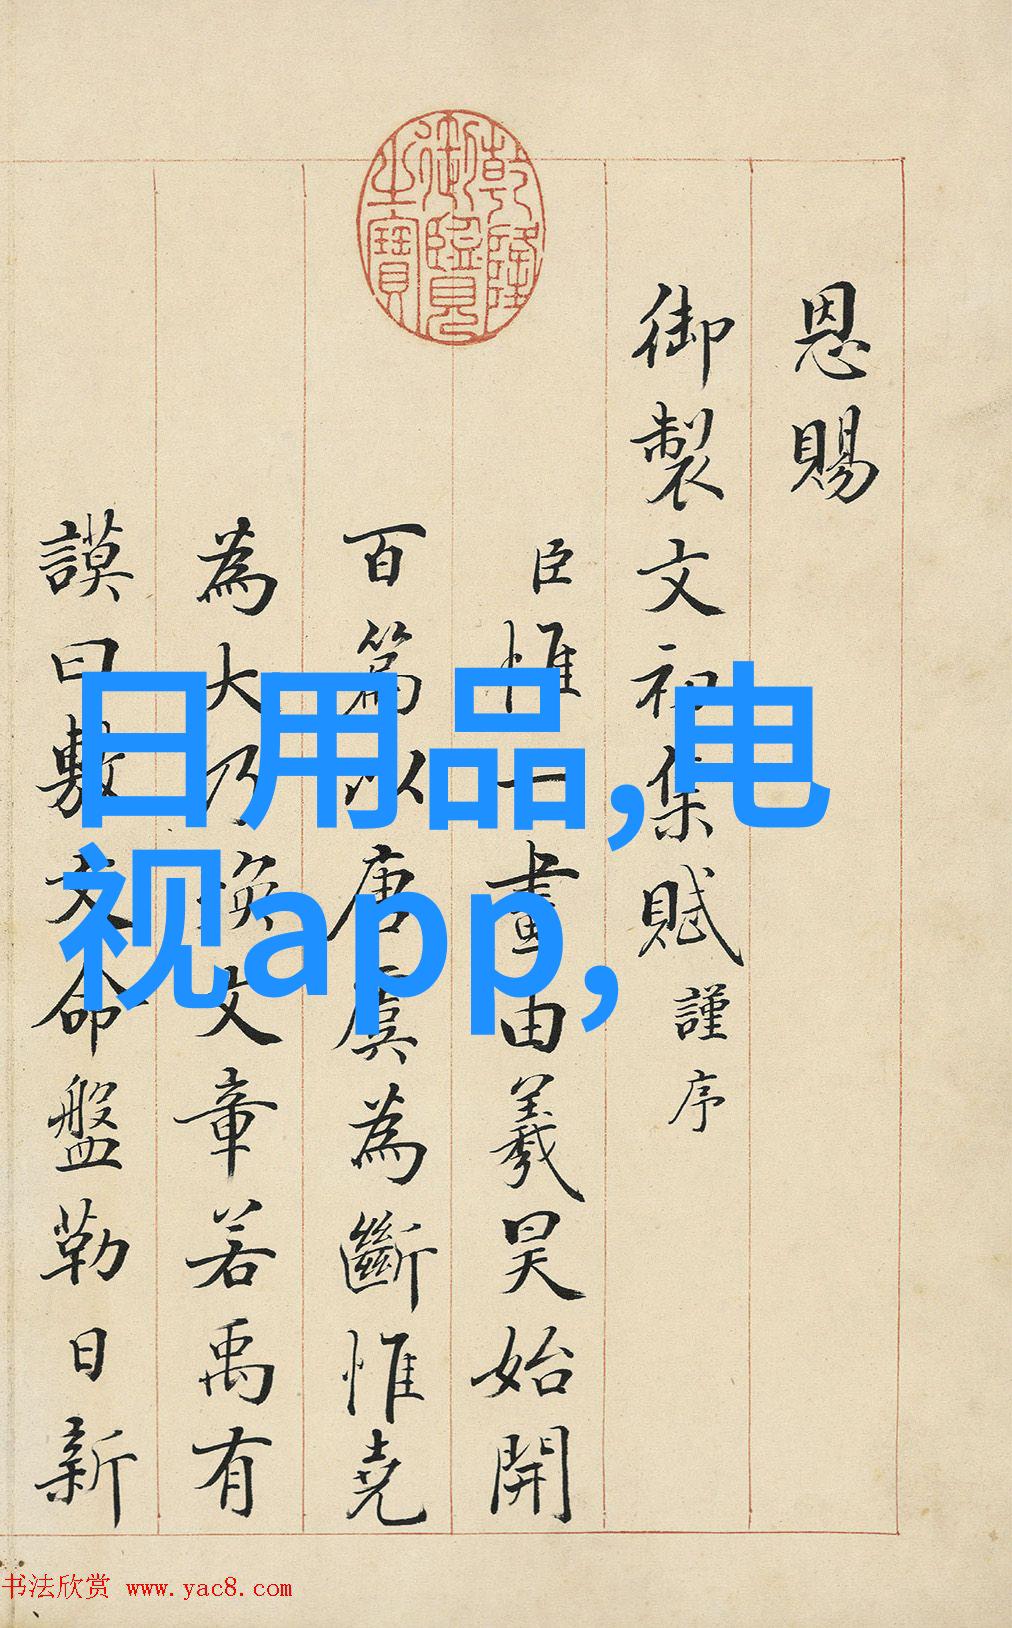 恩賜
御製文初集賦謹序
臣惟一畫由羲昊始開
百篇以唐虞為斷惟堯
為大乃煥文章若禹有
謨曰敷文命盤勒日新
乾隆御覽之寶
日用品,电
视app,
书法欣赏 www.yac8.com